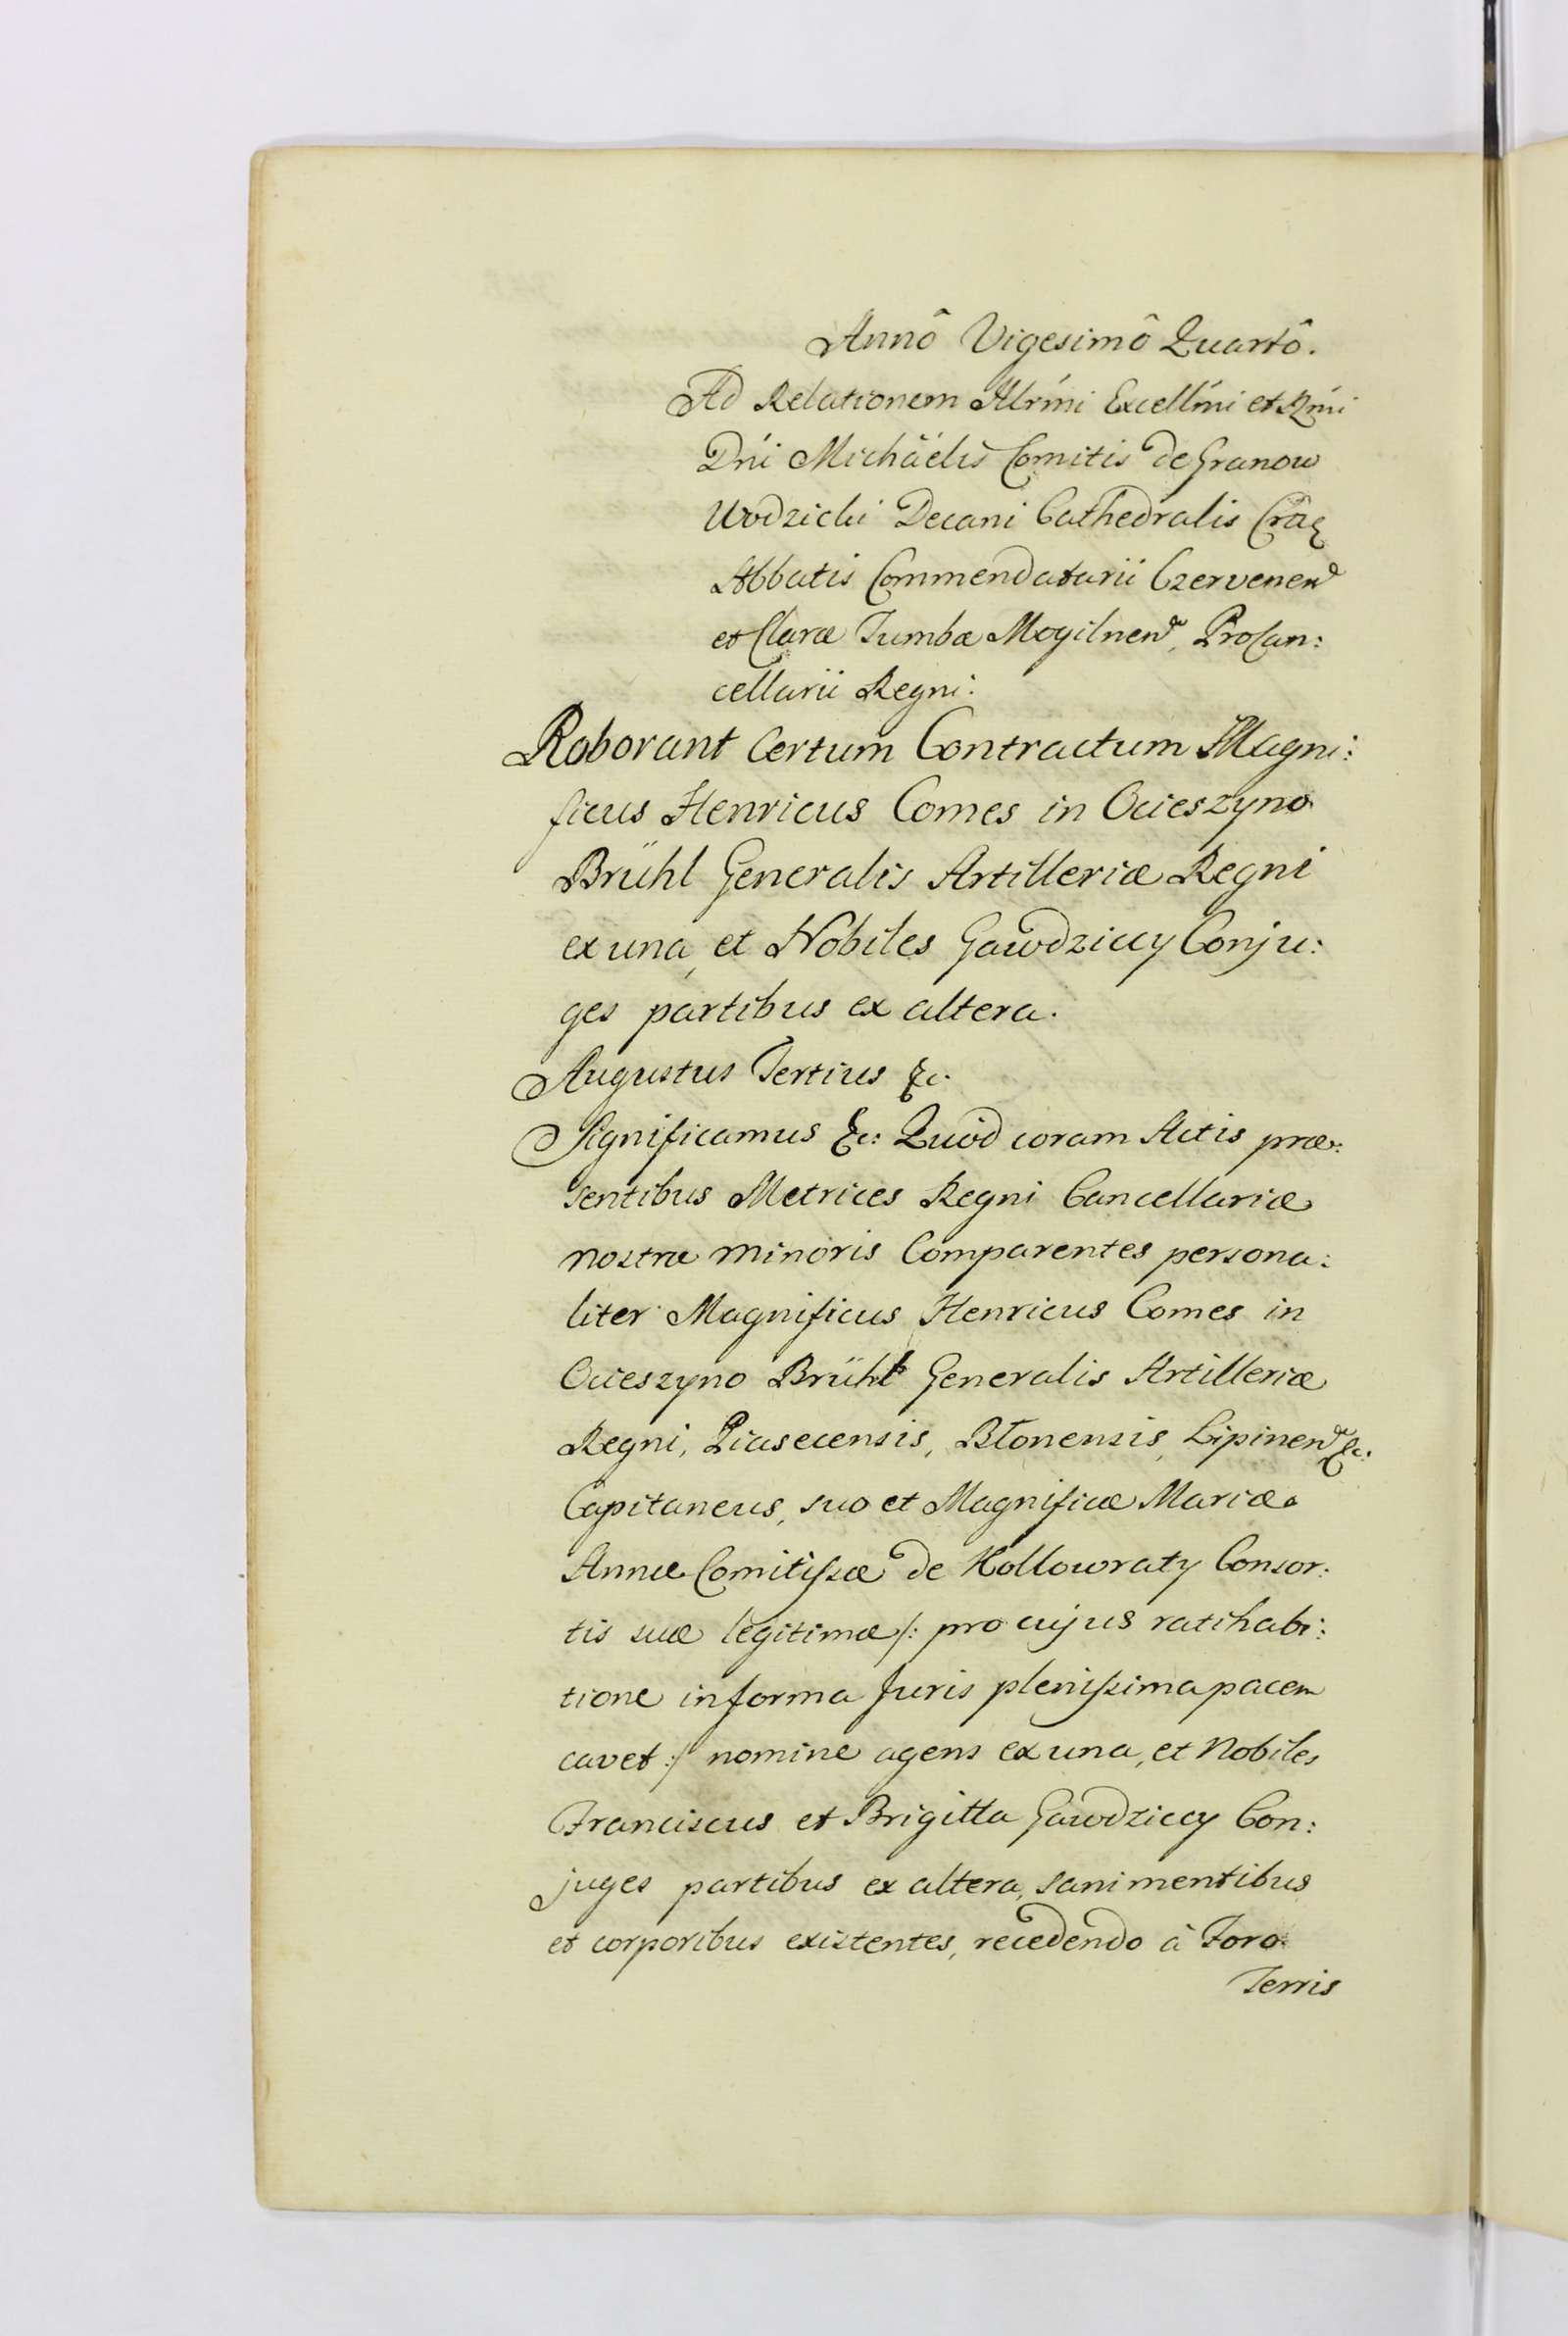 Annô Vigesimô Quartô.
Ad Relationem Illrḿi Excellḿi et Rḿi
Dńi Michäélis Comitis de Granow
Wodzicki Decani Cathedralis Crac
Abbatis Commendatarii Czervenen
et Claræ Tumbæ Mogilnen, ProCan:
cellarii Regni.
Roborant Certum Contractum Magni:
ficus Henricus Comes in Ocieszyno
Brühl Generalis Artilleriæ Regni
ex una, et Nobiles Gawdziccy Conju:
ges partibus ex altera.
Augustus Tertius &c.
Significamus &c: Quòd coram Actis præ:
sentibus Metrices Regni Cancellariæ
nostræ minoris Comparentes persona:
liter Magnificus Henricus Comes in
Ocieszyno Brühl Generalis Artilleriæ
Regni, Piasecensis, Błonensis, Lipinen &c.
Capitaneus, suo et Magnificæ Mariæ
Annæ Comitissæ de Kollowraty Consor:
tis suæ legitimæ /: pro cujus ratihabi:
tione in forma Juris plenissima pacem
cavet :/ nomine agens ex una, et Nobiles
Franciscus et Brigitta Gawdziccy Con:
juges partibus ex altera, sani mentibus
et corporibus existentes, recedendo à Foro
Terris